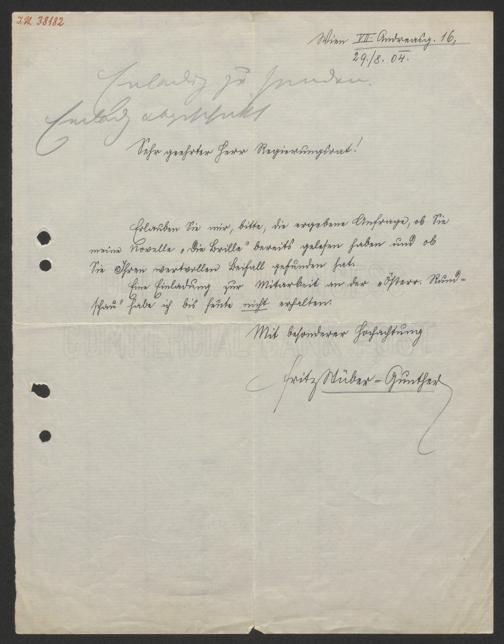 I.N. 38182
Wien VII Andreasg. 16,
29./8. 04.
Einladg zu senden.
Einladg abgeschickt
Sehr geehrter Herr Regierungsrat!
Erlauben Sie mir, bitte, die ergebene Anfrage, ob Sie
meine Novelle „Die Brille“ bereits gelesen haben und ob
Sie Ihren wertvollen Beifall gefunden hat.
Eine Einladung zur Mitarbeit an der „Österr. Rund-
schau“ habe ich bis heute nicht erhalten.
Mit besonderer Hochachtung
Fritz Stüber-Gunther
COMMERCIAL